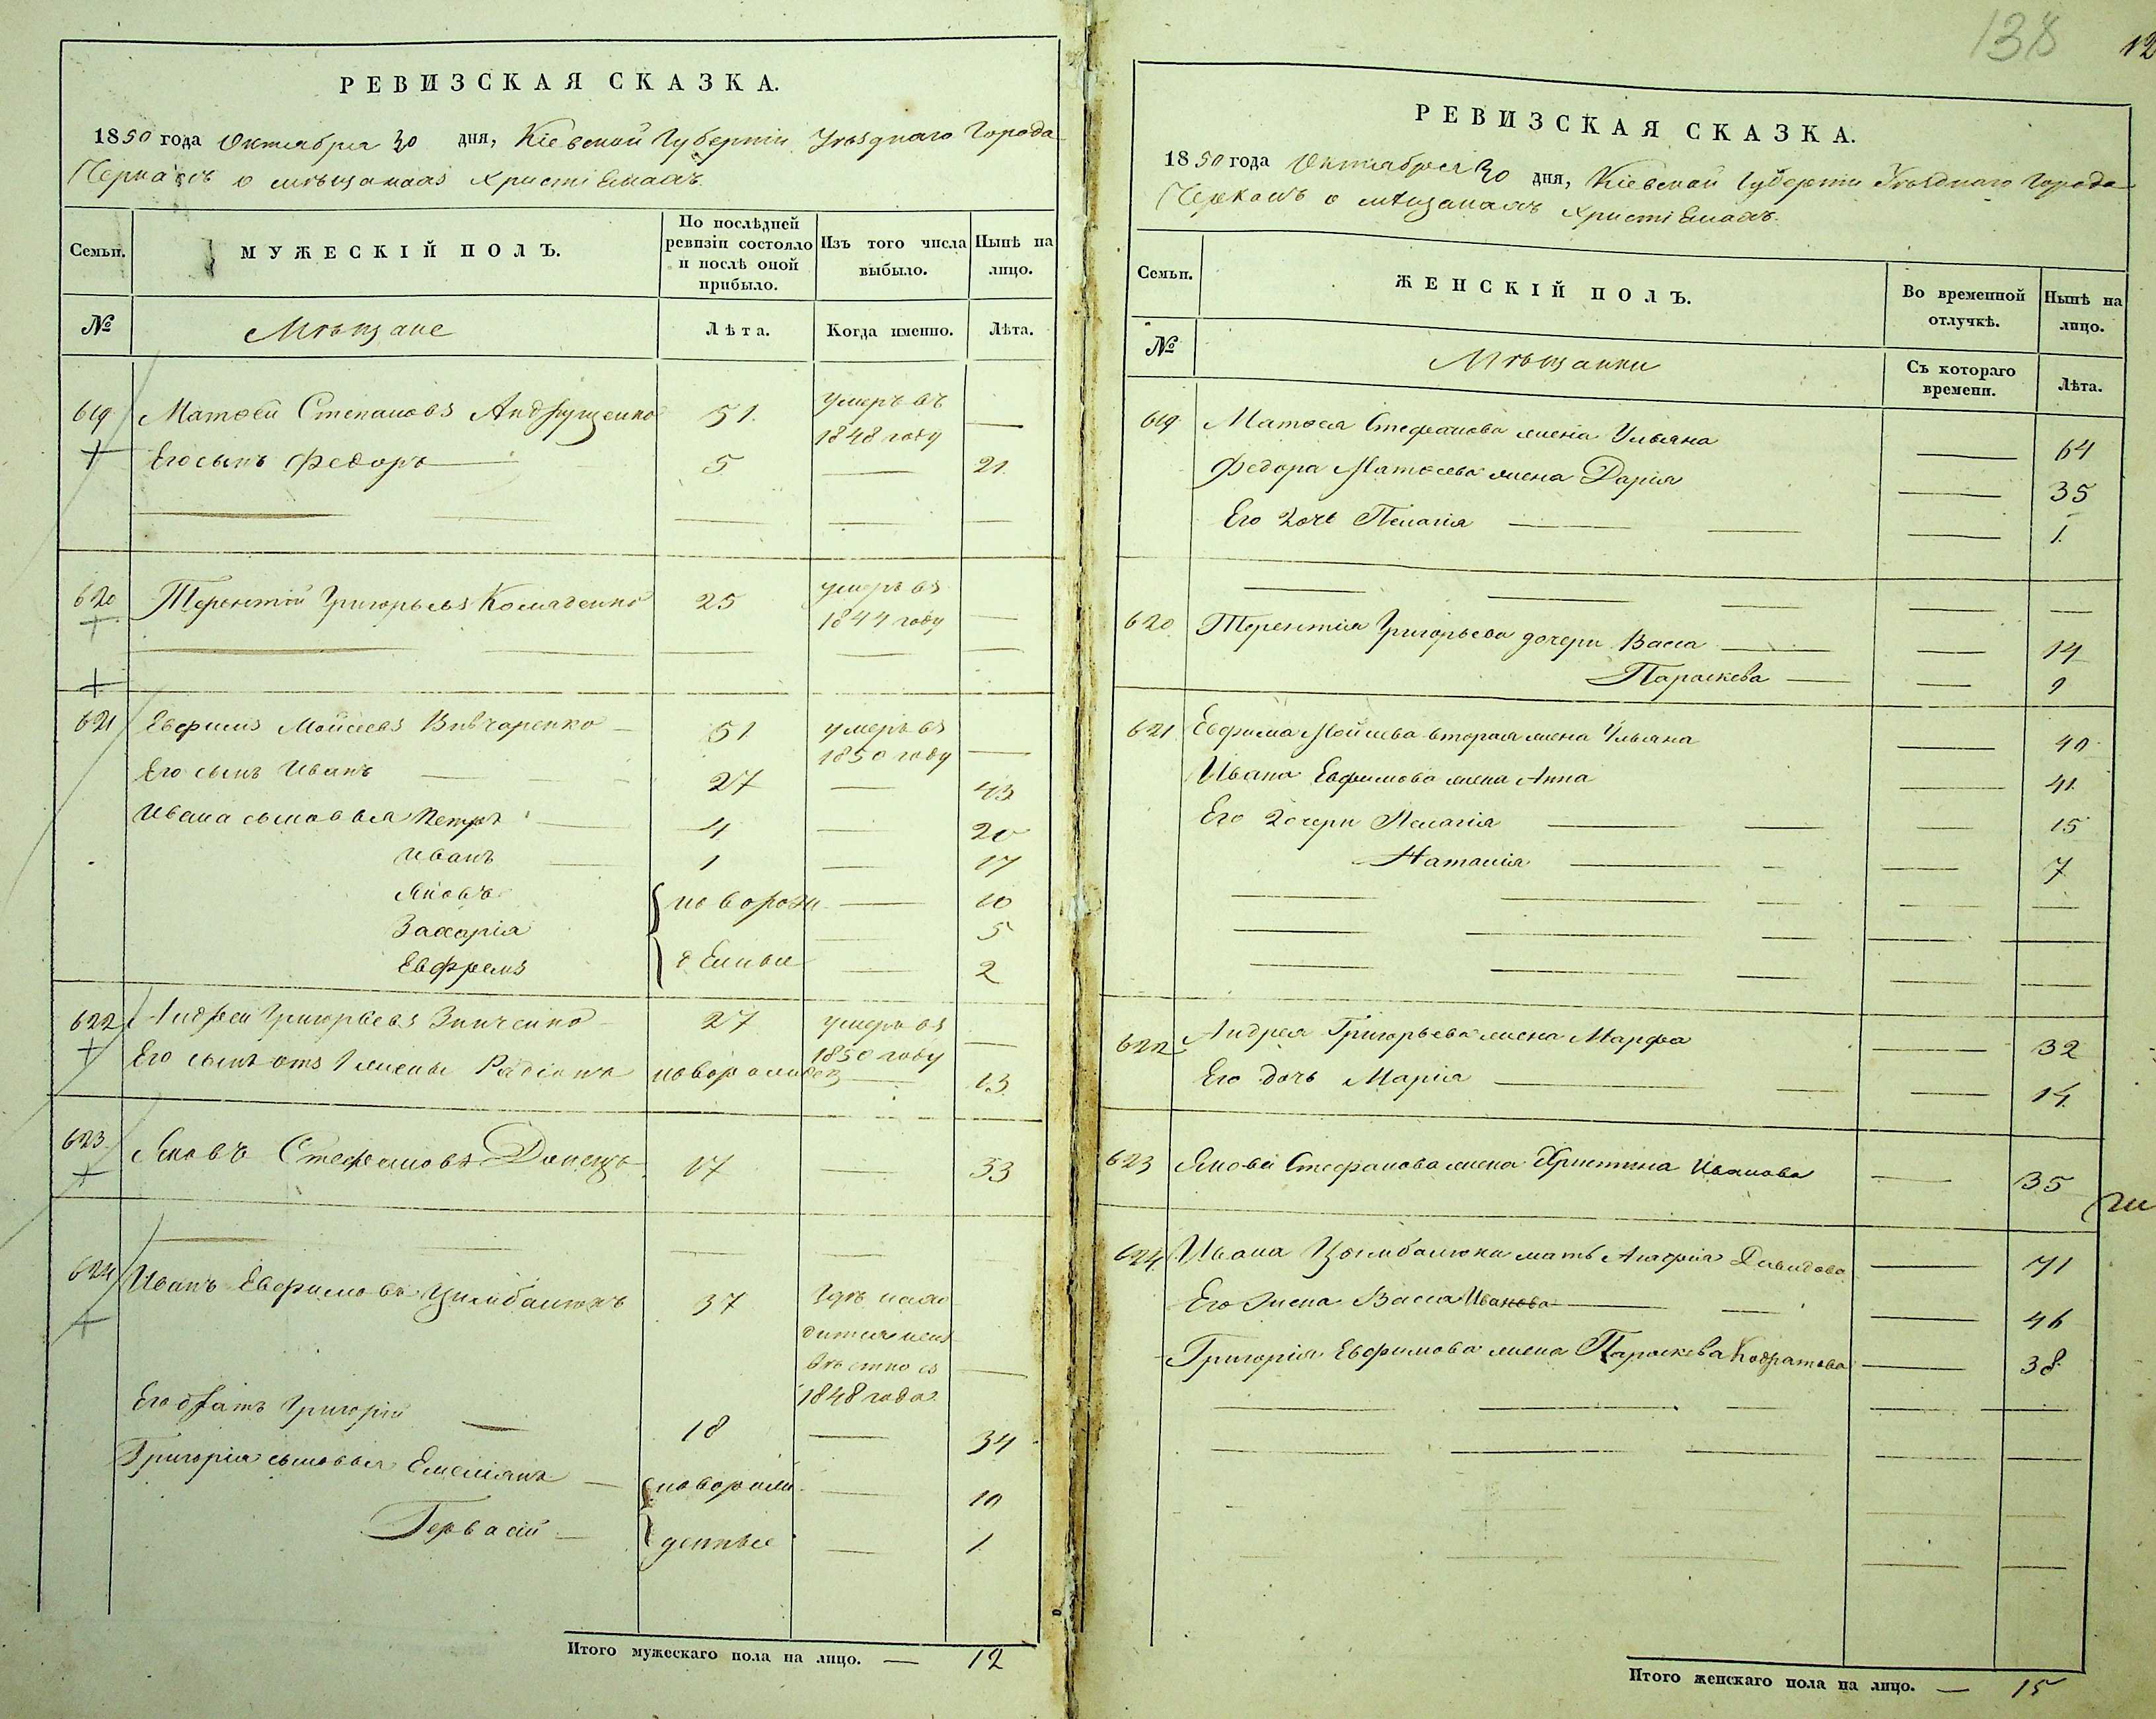 РЕВИЗСКАЯ СКАЗКА.
1850 года Октября 30 дня, Кіевской Губерніи Уѣзднаго Города
Черкасъ о мѣщанахъ христіанахъ.
Семьи.
МУЖЕСКІЙ ПОЛЪ.
По послѣдней ревизіи состояло и послѣ оной прибыло.
Изъ того числа выбыло.
Нынѣ на лицо.
№
Мѣщане
Лѣта.
Когда именно.
Лѣта.
619 Матвей Степановъ Андрущенко 51. умеръ въ 1848 году —
Его сынъ Федоръ 5 — 21.
620 Терентій Григорьевъ 25 умеръ въ 1844 году —
621 Евфимъ Мойсеевъ Вивчаренко 51 умеръ въ 1850 году —
Его сынъ Иванъ 27 — 43
Ивана сыновья Петръ 4 — 20
Иванъ 1 — 17
Яковъ { новорож — 10
Захарія — 5
Евфремъ { денные — 2
622 Андрей Григорьевъ Зинченко 27 умеръ въ 1850 году —
Его сынъ отъ 1 жены Радіонъ новорожден — 13
623 Яковъ Стефановъ Донецъ 17 — 33
624 Иванъ Евфимовъ Цимбалюкъ 37 Гдѣ нахо
дится неиз
вѣстно съ —
1848 года
Его братъ Григорій 18 — 34
Григорія сыновья Емеліянъ { новорож — 10
Гервасій { денные — 1
Итого мужескаго пола на лицо. — 12
138
12
РЕВИЗСКАЯ СКАЗКА.
1850 года Октября 30 дня, Кіевской Губерніи Уѣзднаго Города
Черкасъ о мѣщанахъ христіанахъ.
Семьи.
ЖЕНСКІЙ ПОЛЪ.
Во временной отлучкѣ.
Нынѣ на лицо.
№
Мѣщанки
Съ котораго времени.
Лѣта.
619 Матвея Стефанова жена Ульяна — 64
Федора Матвеева жена Дарія — 35
Его дочь Пелагія — 1.
620 Терентія Григорьева дочери Васса — 14
Параскева — 9
621 Евфима Мойсеева вторая жена Ульяна — 40
Ивана Евфимова жена Анна — 41
Его дочери Пелагія — 15
Наталія — 7
622 Андрея Григорьева жена Марфа — 32
Его дочь Марія — 14
623 Якова Стефанова жена Христина Иванова — 35
624 Ивана Цымбалюка мать Агафія Давидова — 71
Его жена Васса Иванова — 46
Григорія Евфимова жена Параскева Кодратова — 38
Итого женскаго пола на лицо. — 15